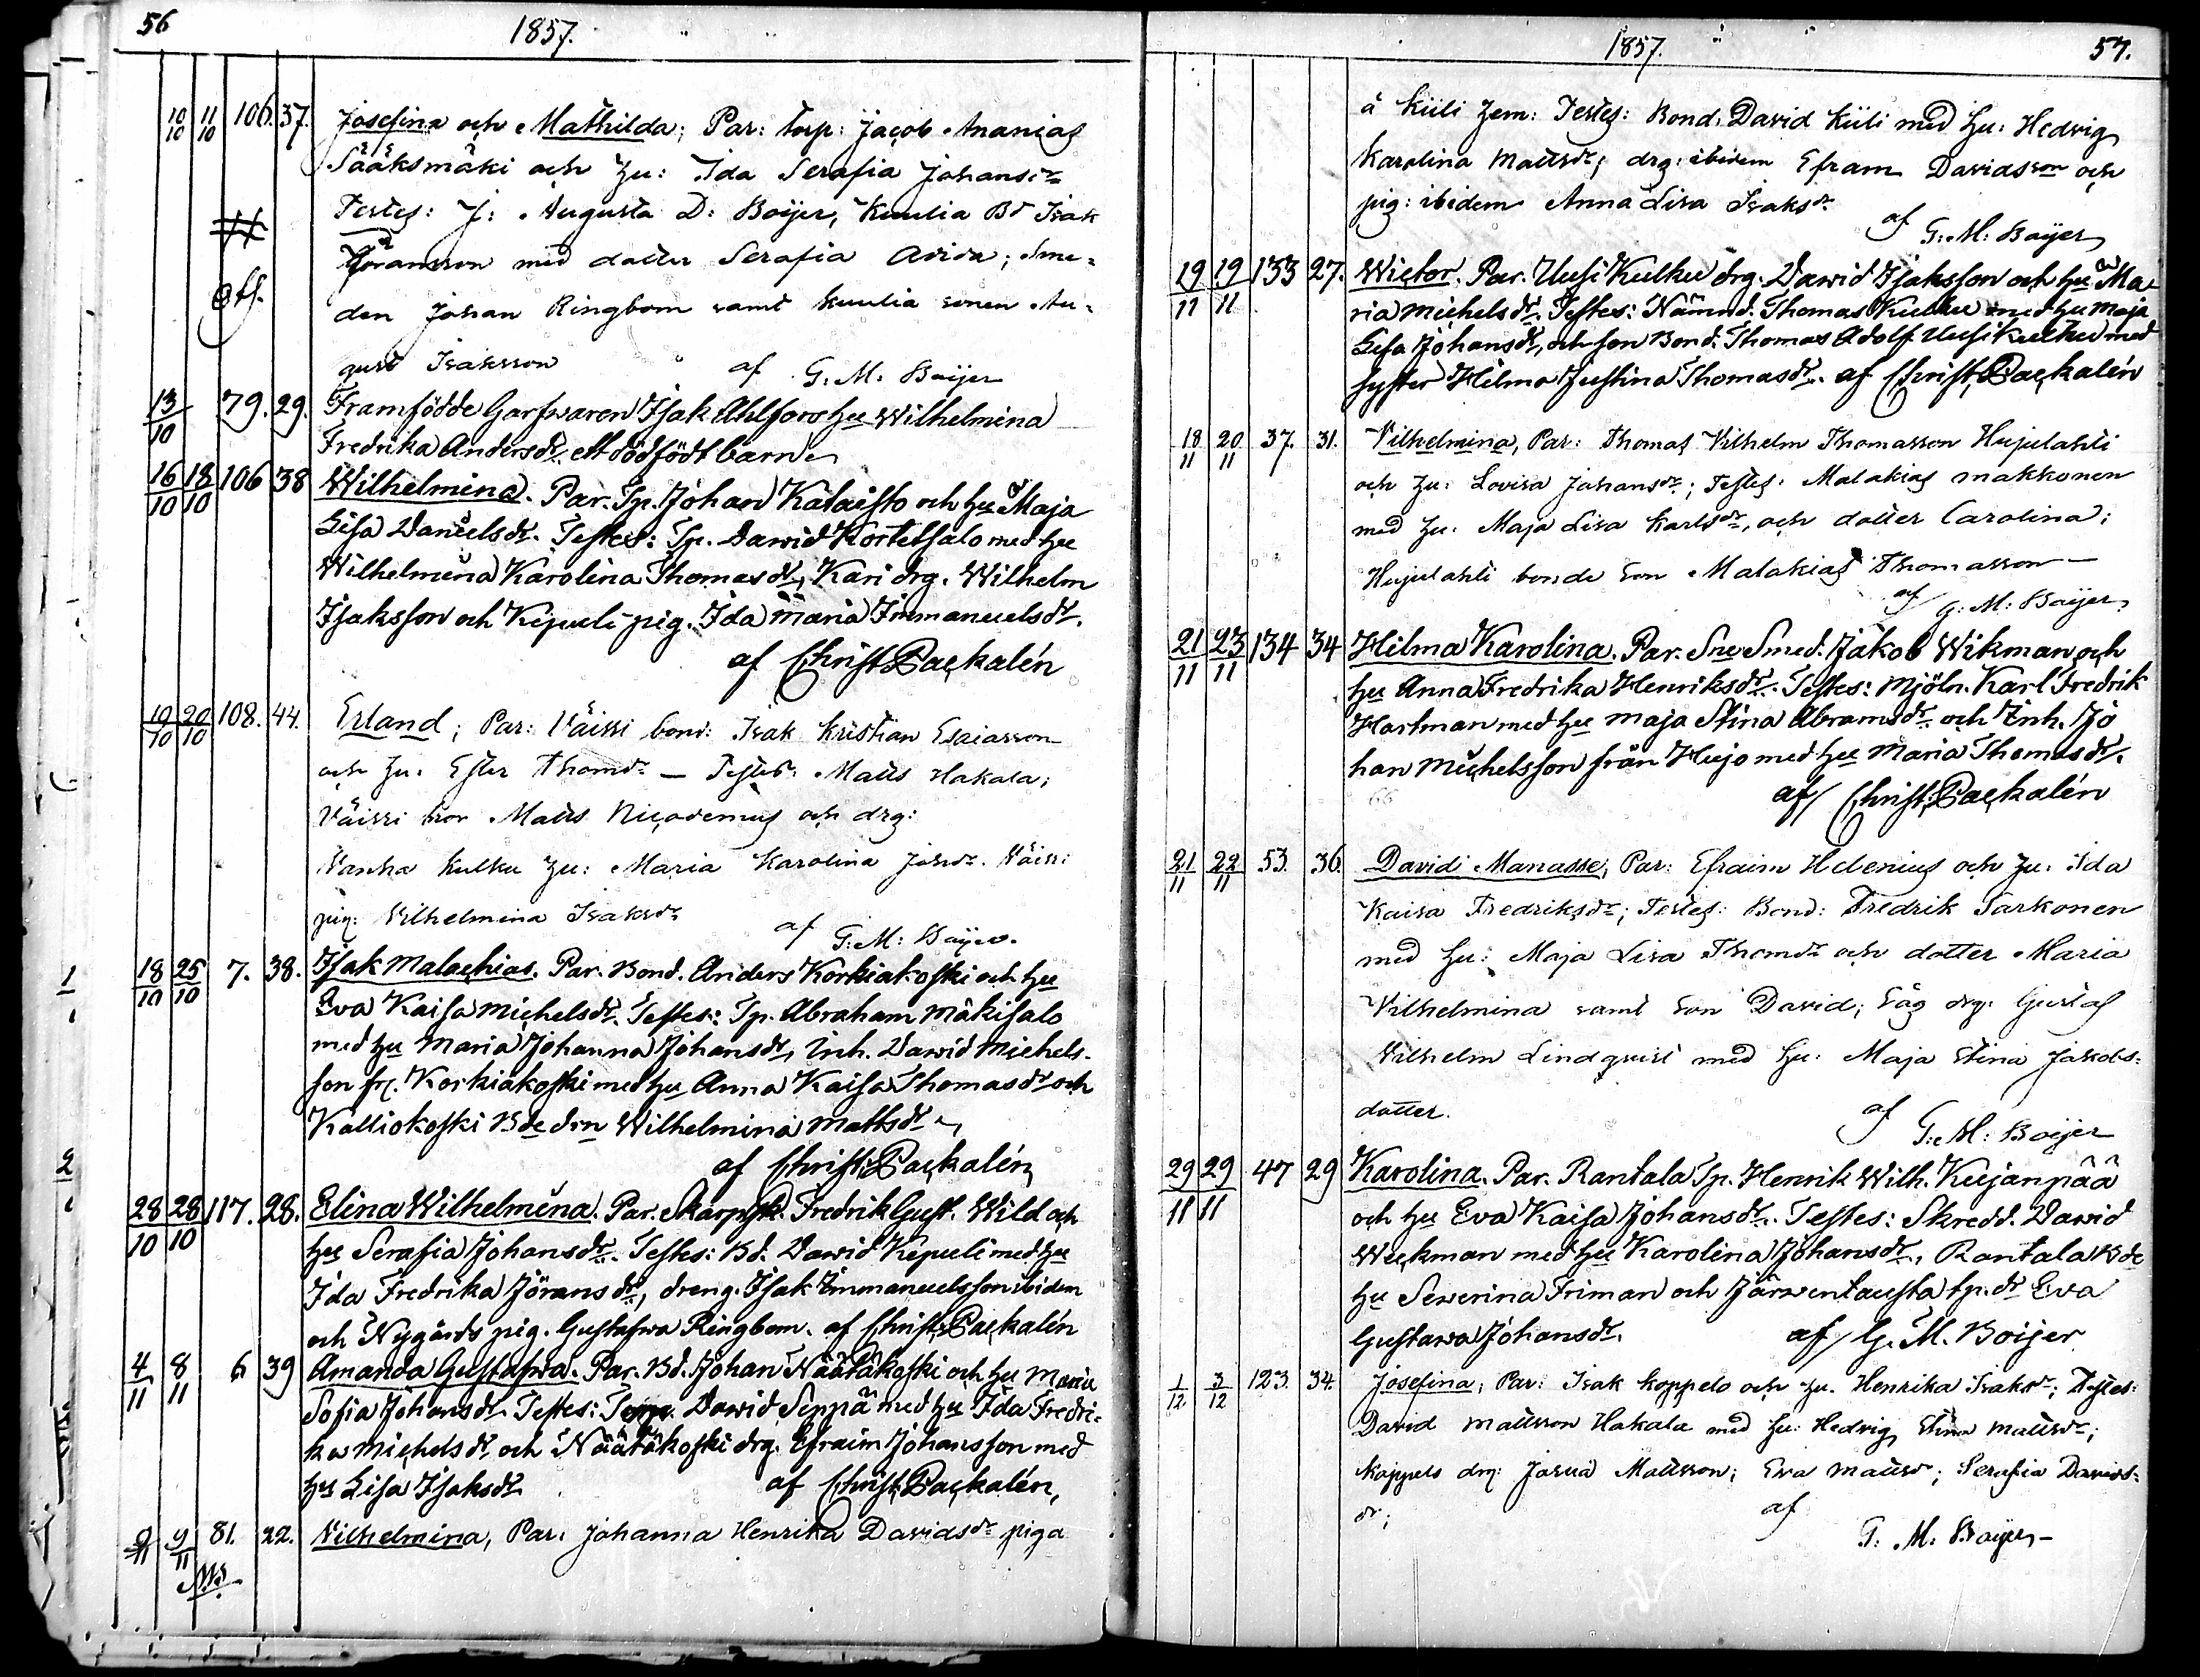 56
1857.
10/10 11/10 106. 37. Josefina och Mathilda; Par: torp: Jacob Ananias
Sääksmäki och hu: Ida Serafia Johansdr
Testes: J: Augusta D: Boijer, Kuulia Bd Isak
Göransson med dotter Serafia Avida; Sme=
den Johan Ringbom samt Kuulia sonen Au=
gust Isaksson af G: M: Boijer
13/10 79. 29. Framfödde Garfwaren Isak Ahlfors hu Wilhelmina
Fredrika Andersdr ett dödfödt barn
16/10 18/10 106 38 Wilhelmina. Par. Tp. Johan Kalaisto och hu Maja
Lisa Danielsdr. Testes: Tp. Dawid Kortetsalo med hu
Wilhelmina Karolina Thomasdr, Kari drg. Wilhelm
Isaksson och Kipueli pig. Ida Maria Immanuelsdr.
af Christ. Packalén
19/10 20/10 108. 44. Erland; Par: Väissi bond: Isak Kristian Esaiasson
och hu: Ester Thomdr — Testes: Matts Hakala;
Väissi bror Matts Nicodemus och drg:
Wanha Kulku hu: Maria Karolina Johdr. Väissi
pig: Vilhelmina Isaksdr af G: M: Boijer.
1
18/10 25/10 7. 38. Isak Malachias. Par. Bond. Anders Korkiakoski och hu
Eva Kaisa Michelsdr. Testes: Tp. Abraham Mäkisalo
med hu Maria Johanna Johansdr, Inh. Dawid Michels-
son fr. Korkiakoski med hu Anna Kaisa Thomasdr och
Kalliokoski Bde drn Wilhelmina Mattsdr
af Christ. Packalén
2
28/10 28/10 117. 28. Elina Wilhelmina. Par. Skarpsk. Fredrik Gust. Wild och
hu Serafia Johansdr. Testes: Bd. Dawid Kipueli med hu
Ida Fredrika Jöransdr, dreng. Isak Immanuelsson ibidem
och Nygårds pig. Gustafwa Ringbom. af Christ. Packalén
4/11 8/11 6 39 Amanda Gustafwa. Par. Bd. Johan Näätäkoski och hu Maria
Sofia Johansdr. Testes: Dawid Seppä med hu Ida Fredri=
ka Michelsdr och Näätäkoski drg. Efraim Johansson med
hu Lisa Isaksdr af Christ. Packalén,
9/11 81. 22. Vilhelmina, Par: Johanna Henrika Davidsdr piga
1857.
57.
å Kiili hem: Testes: Bond: David Kiili med hu: Hedvig
Karolina Mattsdr; drg: ibidem Efram Davidsson och
pig: ibidem Anna Lisa Isaksdr
af G: M: Boijer
19/11 19/11 133 27. Wictor. Par. Uusi Kulku drg. Dawid Isaksson och hu Ma
ria Michelsdr. Testes: Nämnd. Thomas Kulku med hu Maja
Lisa Johansdr, och son Bond. Thomas Adolf Uusikulku med
syster Hilma Justina Thomasdr. af Christ. Packalén
18/11 20/11 37. 31. Vilhelmina, Par: Thomas Vilhelm Thomasson Hujulahti
och hu: Lovisa Johansdr; Testes: Malakias Makkonen
med hu: Maja Lisa Karlsdr, och dotter Carolina;
Hujulahti bonde son Malakias Thomasson —
af G: M: Boijer
21/11 23/11 134 34 Hilma Karolina. Par. Sne Smed. Jakob Wikman och
hu Anna Fredrika Henriksdr. Testes: Mjöln. Karl Fredrik
Hartman med hu Maja Stina Abramsdr och Inh. Jo
han Michelsson från Hujo med hu Maria Thomasdr.
66
af Christ. Packalén
21/11 22/11 53. 36. David Manasse; Par: Efraim Helenius och hu: Ida
Kaisa Fredriksdr; Testes: Bond: Fredrik Sarkonen
med hu: Maja Lisa Thomdr och dotter Maria
Vilhelmina samt son David; Såg drg: Gustaf
Vilhelm Lindqvist med hu: Maja Stina Jakobs=
dotter. af G: M: Boijer
29/11 29/11 47 29 Karolina. Par. Rantala Tp. Henrik Wilh. Kujanpää
och hu Eva Kaisa Johansdr. Testes: Skredd. Dawid
Wickman med hu Karolina Johansdr, Rantala Bde
hu Sewerina Friman och Järwentausta tp. dr Eva
Gustawa Johansdr. af G. M. Boijer
1/12 3/12 123. 34. Josefina; Par: Isak Koppelo och hu. Henrika Isaksdr; Testes:
David Mattsson Hakala med hu: Hedvig Stina Mattsdr;
Koppelo drg: Josua Mattsson; Eva Mattsdr; Serafia Davids=
dr; af
G: M: Boijer —